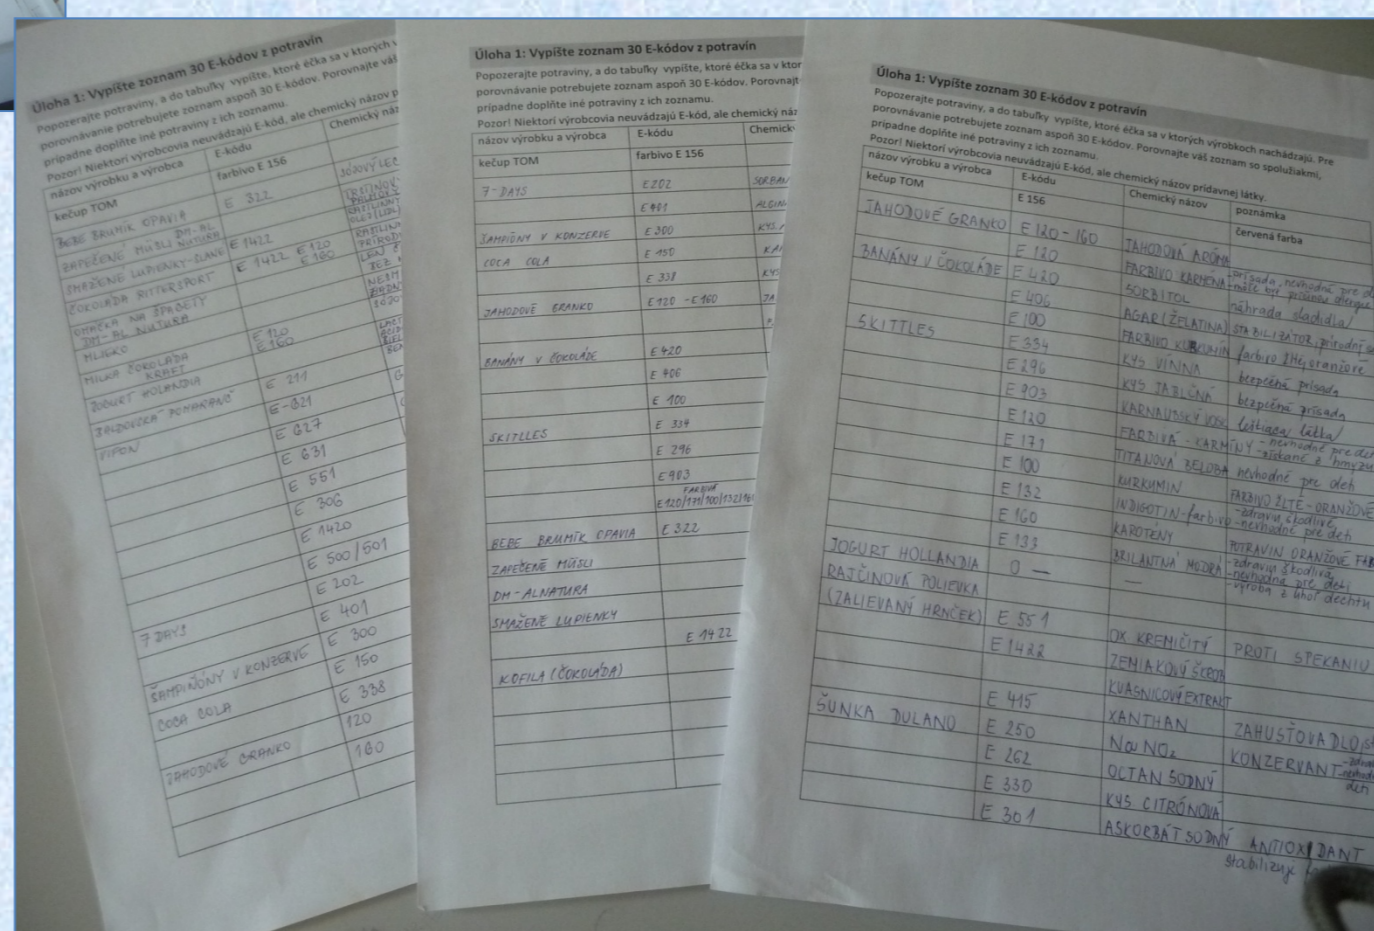 Úloha 1: Vypíšte zoznam 30 E-kódov z potravín
Popozerajte potraviny, a do tabuľky vypíšte, ktoré éčka sa v ktorých
porovnávanie potrebujete zoznam aspoň 30 E-kódov. Porovnajte váš
prípadne doplňte iné potraviny z ich zoznamu.
Pozor! Niektorí výrobcovia neuvádzajú E-kód, ale chemický názov
názov výrobku a výrobca E-kódu Chemický
kečup TOM farbivo E 156
BEBE BRUMÍK OPAVIA E 322
ZAPEČENÉ MÜSLI DM-AL NUTURA
SMAŽENÉ LUPIENKY-SLANÉ E 1422
ČOKOLÁDA RITTERSPORT E 1422 E 120 E 160
OMÁČKA NA ŠPAGETY
DM-AL NUTURA
MLIEKO
MILKA ČOKOLÁDA E 120
KRAFT E 160
JOGURT HOLANDIA
E 211
VIPON E-621
E 627
E 631
E 551
E 306
E 1420
E 500/501
E 202
7 DAYS E 401
ŠAMPIŇÓNY V KONZERVE E 300
COCA COLA E 150
E 338
JAHODOVÉ GRANKO 120
160
Úloha 1: Vypíšte zoznam 30 E-kódov z potravín
Popozerajte potraviny, a do tabuľky vypíšte, ktoré éčka sa v
porovnávanie potrebujete zoznam aspoň 30 E-kódov. Porovnajt
prípadne doplňte iné potraviny z ich zoznamu.
Pozor! Niektorí výrobcovia neuvádzajú E-kód, ale chemický
názov výrobku a výrobca E-kódu Chemick
kečup TOM farbivo E 156
7-DAYS E202
E401
ŠAMPIÓNY V KONZERVE E 300
COCA COLA E 150
E 338
JAHODOVÉ GRANKO E120 -E160
BANÁNY V ČOKOLÁDE E 420
E 406
E 100
SKITLLES E 334
E 296
E903
FARBIVÁ
E120/171/100/132/160
BEBE BRUMÍK OPAVIA E 322
ZAPEČENÉ MÜSLI
DM-ALNATURA
SMAŽENÉ LUPIENKY
E 1422
KOFILA (ČOKOLÁDA)
Úloha 1: Vypíšte zoznam 30 E-kódov z potravín
Popozerajte potraviny, a do tabuľky vypíšte, ktoré éčka sa v ktorých výrobkoch nachádzajú. Pre
porovnávanie potrebujete zoznam aspoň 30 E-kódov. Porovnajte váš zoznam so spolužiakmi,
prípadne doplňte iné potraviny z ich zoznamu.
Pozor! Niektorí výrobcovia neuvádzajú E-kód, ale chemický názov prídavnej látky.
názov výrobku a výrobca E-kódu Chemický názov poznámka
kečup TOM E 156 červená farba
JAHODOVÉ GRANKO E 120-160 JAHODOVÁ ARÓMA
E 120 FARBIVO KARMÍNA -prísada, nevhodné pre
BANÁNY V ČOKOLÁDE E 420 SORBITOL náhrada sladidla
E 406 AGAR (ŽELATINA) STABILIZÁTOR, prírodní
E 100 FARBIVO KURKUMÍN farbivo žlté, oranžové
SKITTLES E 334 KYS VÍNNA bezpečná prísada
E 296 KYS JABLČNÁ bezpečná prísada
E 903 KARNAUBSKÝ VOSK leštiaca látka
E120 FARBIVÁ - KARMÍNY -nevhodné pre deti
-získané z hmyzu
E 171 TITANOVÁ BELOBA nevhodné pre deti
E 100 KURKUMIN FARBIVO ŽLTÉ - ORANŽOVÉ
E 132 INDIGOTIN-farbivo -zdraviu škodlivé
-nevhodné pre deti
E 160 KAROTÉNY POTRAVIN ORANŽOVÉ
E 133 BRILANTNÁ MODRÁ -zdraviu škodlivá
-nevhodná pre deti
-výroba z uhoľ dechtu
JOGURT HOLLANDIA 0 — —
RAJČINOVÁ POLIEVKA
(ZALIEVANÝ HRNČEK) E 551 OX KREMIČITÝ PROTI SPEKANIU
E 1422 ZEMIAKOVÝ ŠKROB
KVASNICOVÝ EXTRAKT
E 415 XANTHAN ZAHUSŤOVADLO
ŠUNKA DULANO E 250 NaNO2 KONZERVANT
E 262 OCTAN SODNÝ
E 330 KYS CITRÓNOVÁ
E 301 ASKORBÁT SODNÝ ANTIOXIDANT
stabilizuje